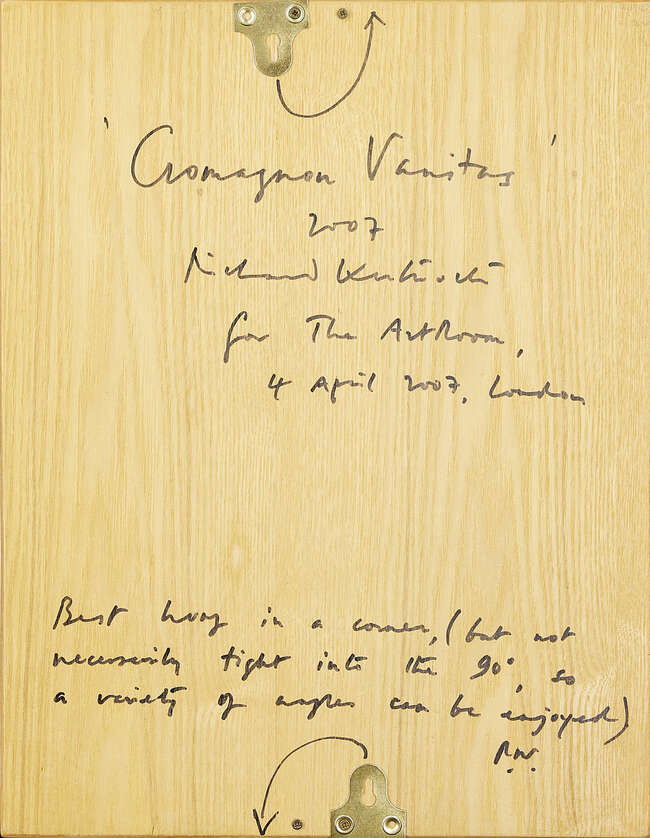 'Cromagnon Vanitas'
2007
Richard Wentworth
for The ArtRoom,
4 April 2007, London
Best hung in a corner, (but not
necessarily tight into the 90°, so
a variety of angles can be enjoyed)
R.W.